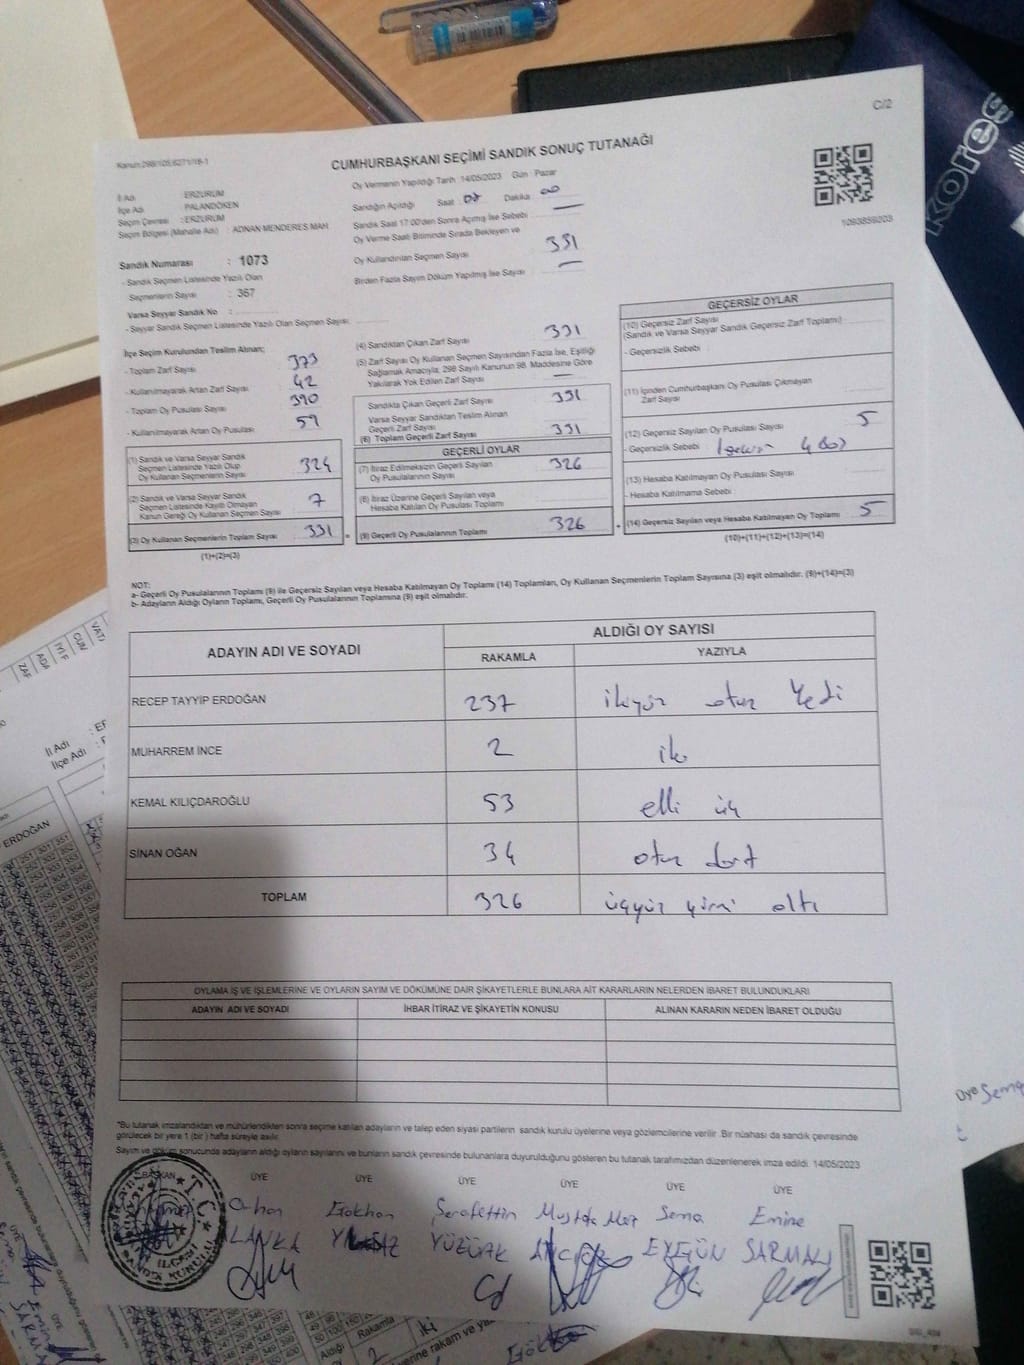 C/2
Kanun:298/105,6271/18-1
CUMHURBAŞKANI SEÇİMİ SANDIK SONUÇ TUTANAĞI
İl Adı : ERZURUM
İlçe Adı : PALANDÖKEN
Seçim Çevresi : ERZURUM
Seçim Bölgesi (Mahalle Adı) : ADNAN MENDERES MAH
Sandık Numarası : 1073
- Sandık Seçmen Listesinde Yazılı Olan
Seçmenlerin Sayısı : 367
Varsa Seyyar Sandık No :
- Seyyar Sandık Seçmen Listesinde Yazılı Olan Seçmen Sayısı:
Oy Vermenin Yapıldığı Tarih :14/05/2023 Gün : Pazar
Sandığın Açıldığı Saat : Dakika :
Sandık Saat 17:00'den Sonra Açımış İse Sebebi :
Oy Verme Saati Bitiminde Sırada Bekleyen ve
Oy Kullandırılan Seçmen Sayısı 331
Birden Fazla Sayım Döküm Yapılmış İse Sayısı —
1093859203
İlçe Seçim Kurulundan Teslim Alınan;
- Toplam Zarf Sayısı 373
- Kullanılmayarak Artan Zarf Sayısı 42
- Toplam Oy Pusulası Sayısı 390
- Kullanılmayarak Artan Oy Pusulası 59
(1) Sandık ve Varsa Seyyar Sandık
Seçmen Listesinde Yazılı Olup
Oy Kullanan Seçmenlerin Sayısı 324
(2) Sandık ve Varsa Seyyar Sandık
Seçmen Listesinde Kayıtlı Olmayan
Kanun Gereği Oy Kullanan Seçmen Sayısı 7
(3) Oy Kullanan Seçmenlerin Toplam Sayısı 331
(1)+(2)=(3)
(4) Sandıktan Çıkan Zarf Sayısı 331
(5) Zarf Sayısı Oy Kullanan Seçmen Sayısından Fazla İse, Eşitliği
Sağlamak Amacıyla, 298 Sayılı Kanunun 98. Maddesine Göre
Yakılarak Yok Edilen Zarf Sayısı —
Sandıkta Çıkan Geçerli Zarf Sayısı 331
Varsa Seyyar Sandıktan Teslim Alınan
Geçerli Zarf Sayısı
(6) Toplam Geçerli Zarf Sayısı 331
GEÇERLİ OYLAR
(7) İtiraz Edilmeksizin Geçerli Sayılan
Oy Pusulalarının Sayısı 326
(8) İtiraz Üzerine Geçerli Sayılan veya
Hesaba Katılan Oy Pusulası Toplamı
(9) Geçerli Oy Pusulalarının Toplamı 326
GEÇERSİZ OYLAR
(10) Geçersiz Zarf Sayısı
(Sandık ve Varsa Seyyar Sandık Geçersiz Zarf Toplamı)
- Geçersizlik Sebebi :
(11) İçinden Cumhurbaşkanı Oy Pusulası Çıkmayan
Zarf Sayısı
(12) Geçersiz Sayılan Oy Pusulası Sayısı 5
- Geçersizlik Sebebi
(13) Hesaba Katılmayan Oy Pusulası Sayısı
- Hesaba Katılmama Sebebi :
(14) Geçersiz Sayılan veya Hesaba Katılmayan Oy Toplamı 5
(10)+(11)+(12)+(13)=(14)
NOT:
a- Geçerli Oy Pusulalarının Toplamı (9) ile Geçersiz Sayılan veya Hesaba Katılmayan Oy Toplamı (14) Toplamları, Oy Kullanan Seçmenlerin Toplam Sayısına (3) eşit olmalıdır. (9)+(14)=(3)
b- Adayların Aldığı Oyların Toplamı, Geçerli Oy Pusulalarının Toplamına (9) eşit olmalıdır.
ADAYIN ADI VE SOYADI
ALDIĞI OY SAYISI
RAKAMLA YAZIYLA
RECEP TAYYİP ERDOĞAN 237 ikiyüz otuz yedi
MUHARREM İNCE 2 iki
KEMAL KILIÇDAROĞLU 53 elli üç
SİNAN OĞAN 34 otuz dört
TOPLAM 326 üçyüz yirmi altı
OYLAMA İŞ VE İŞLEMLERİNE VE OYLARIN SAYIM VE DÖKÜMÜNE DAİR ŞİKAYETLERLE BUNLARA AİT KARARLARIN NELERDEN İBARET BULUNDUKLARI
ADAYIN ADI VE SOYADI İHBAR İTİRAZ VE ŞİKAYETİN KONUSU ALINAN KARARIN NEDEN İBARET OLDUĞU
*Bu tutanak imzalandıktan ve mühürlendikten sonra seçime katılan adayların ve talep eden siyasi partilerin sandık kurulu üyelerine veya gözlemcilerine verilir .Bir nüshası da sandık çevresinde
görülecek bir yere 1 (bir ) hafta süreyle asılır.
Sayım ve döküm sonucunda adayların aldığı oyların sayılarını ve bunların sandık çevresinde bulunanlara duyurulduğunu gösteren bu tutanak tarafımızdan düzenlenerek imza edildi. 14/05/2023
BAŞKAN ÜYE ÜYE ÜYE ÜYE ÜYE ÜYE
Orhan Gökhan Şerafettin Mustafa Mert Sema Emine
YILMAZ YÜZÜAK SARMALI
T.C.
kores
İl Adı : ER
İlçe Adı
ERDOĞAN